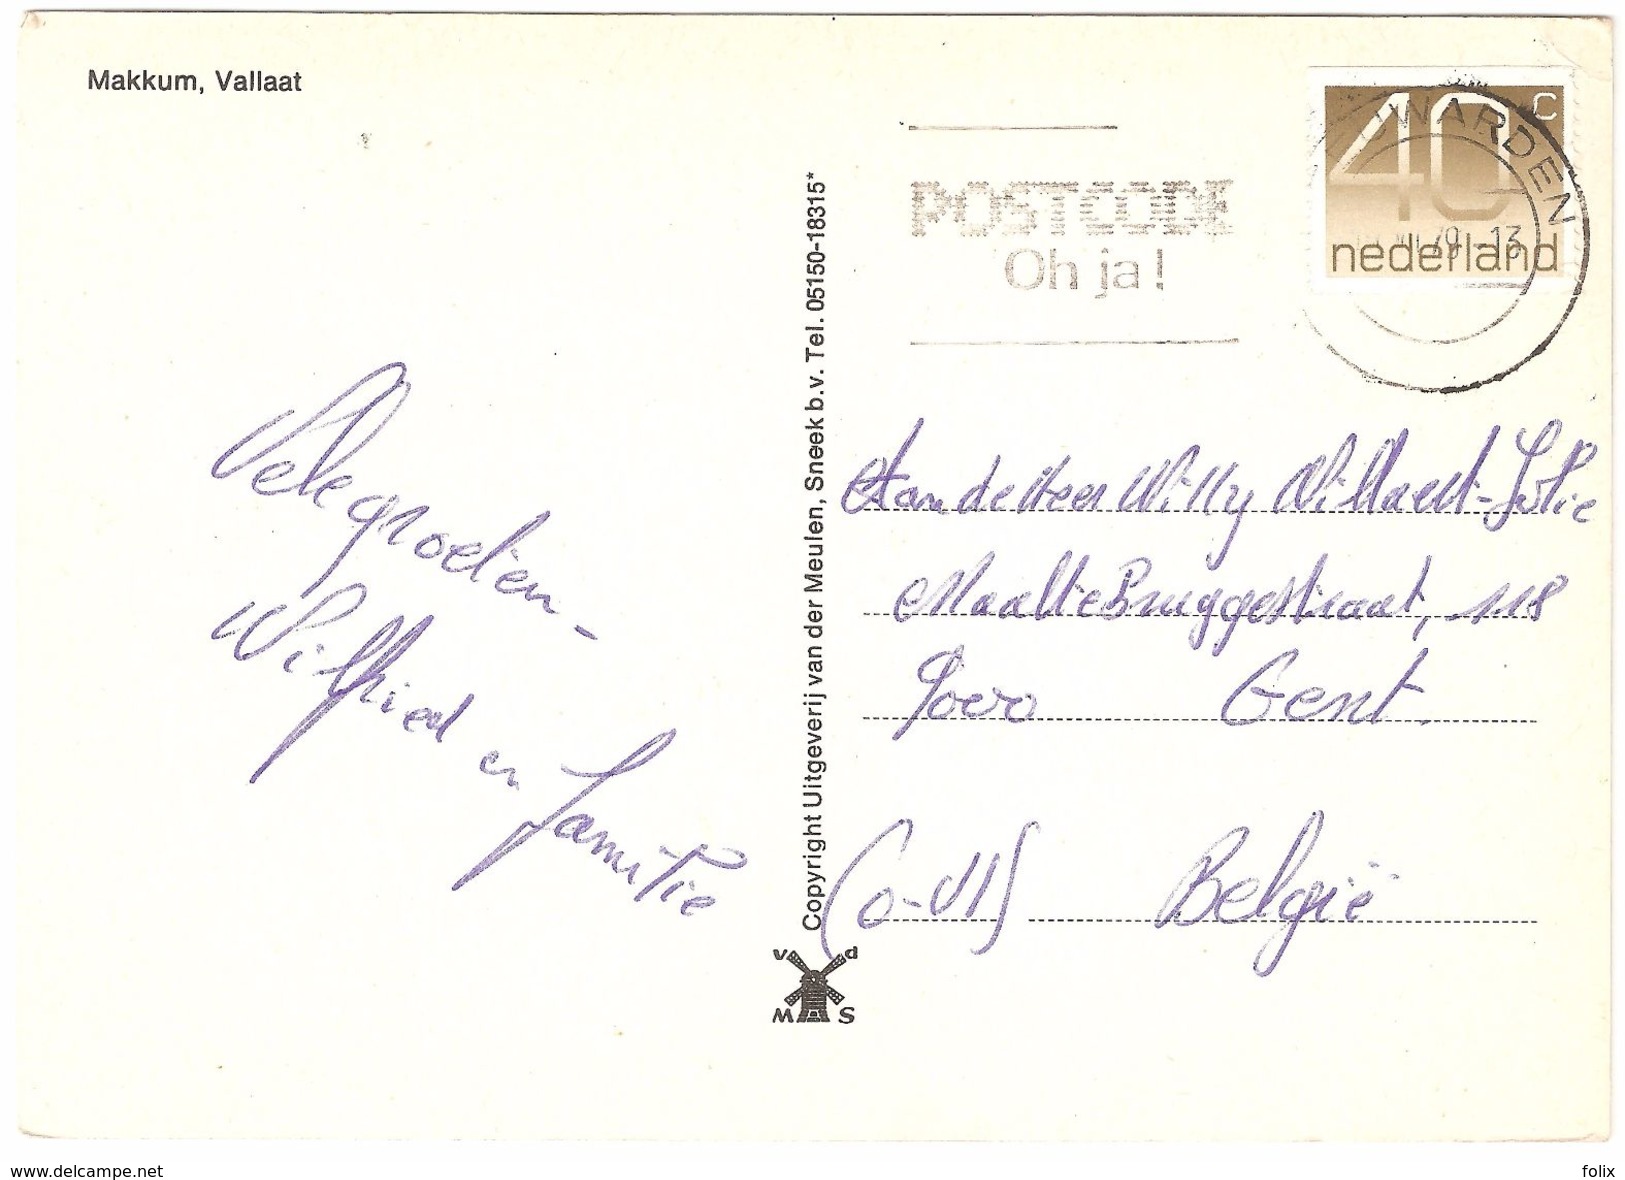 Makkum, Vallaat
POSTCODE
Oh ja!
40 C
nederland
WARDEN
79 -13
Copyright Uitgeverij van der Meulen, Sneek b.v. Tel. 05150-18315*
Vele groeten -
Wilfried en familie
Aan de Heer Willy Willaert - Jolie
Maaltebruggestraat, 118
9000 Gent.
(O-Vl) België
v d
M S
www.delcampe.net
folix